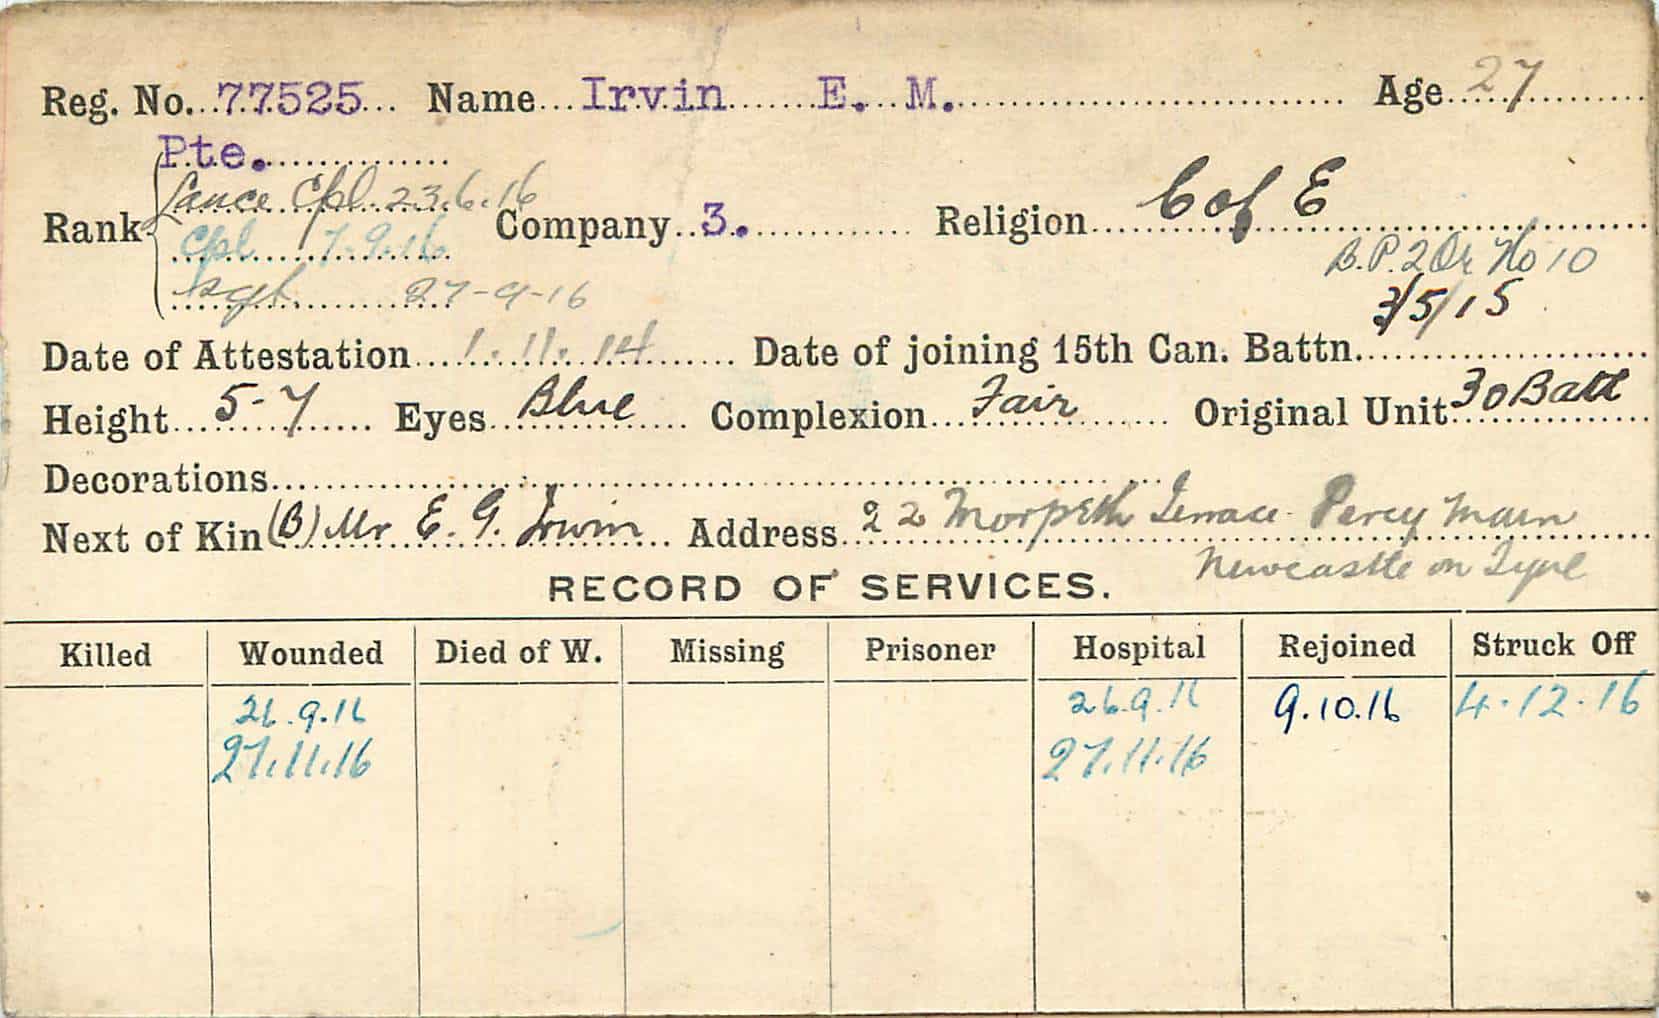 Reg. No. 77525 Name Irvin E. M. Age 27
Pte.
Lance Cpl. 23.6.16
Rank Company 3. Religion C of E
Cpl 7.9.16
B.P.2 Or No 10
Sgt. 27-9-16
3/5/15
Date of Attestation 1.11.14 Date of joining 15th Can. Battn.
Height 5-7 Eyes Blue Complexion Fair Original Unit 30 Batt
Decorations
Next of Kin (B) Mr E. G. Irwin Address 22 Morpeth Terrace Percy Main
Newcastle on Tyne
RECORD OF SERVICES.
Killed Wounded Died of W. Missing Prisoner Hospital Rejoined Struck Off
26.9.16 26.9.16 9.10.16 4.12.16
27.11.16 27.11.16